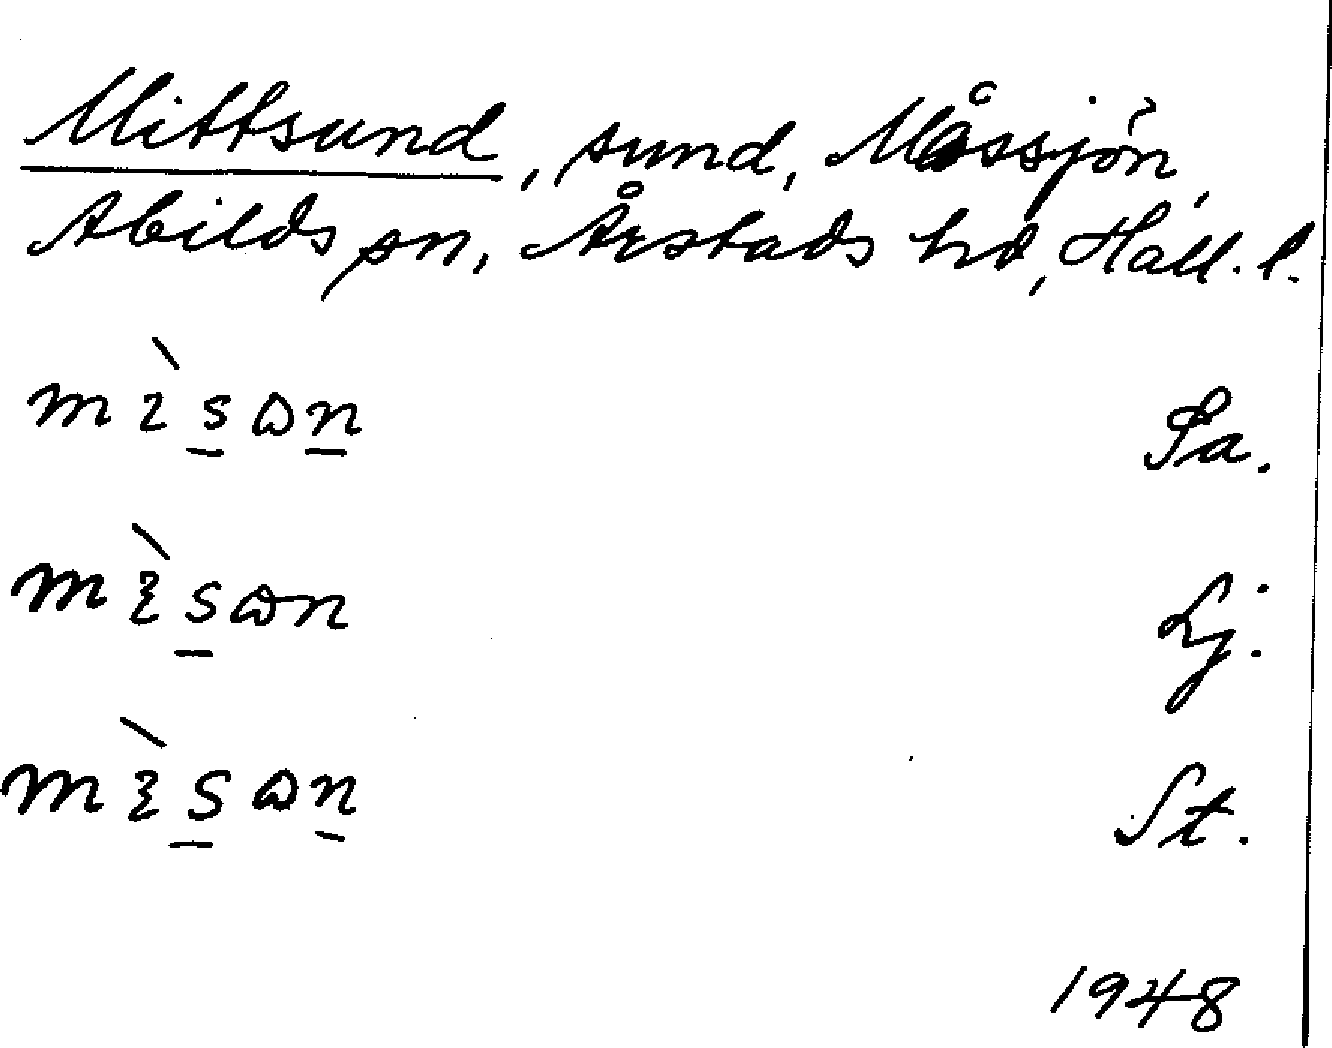 Mittsund, sund, Måssjön,
Abilds sn, Årstads hd, Hall. l.
Sa.
Lj.
St.
1948